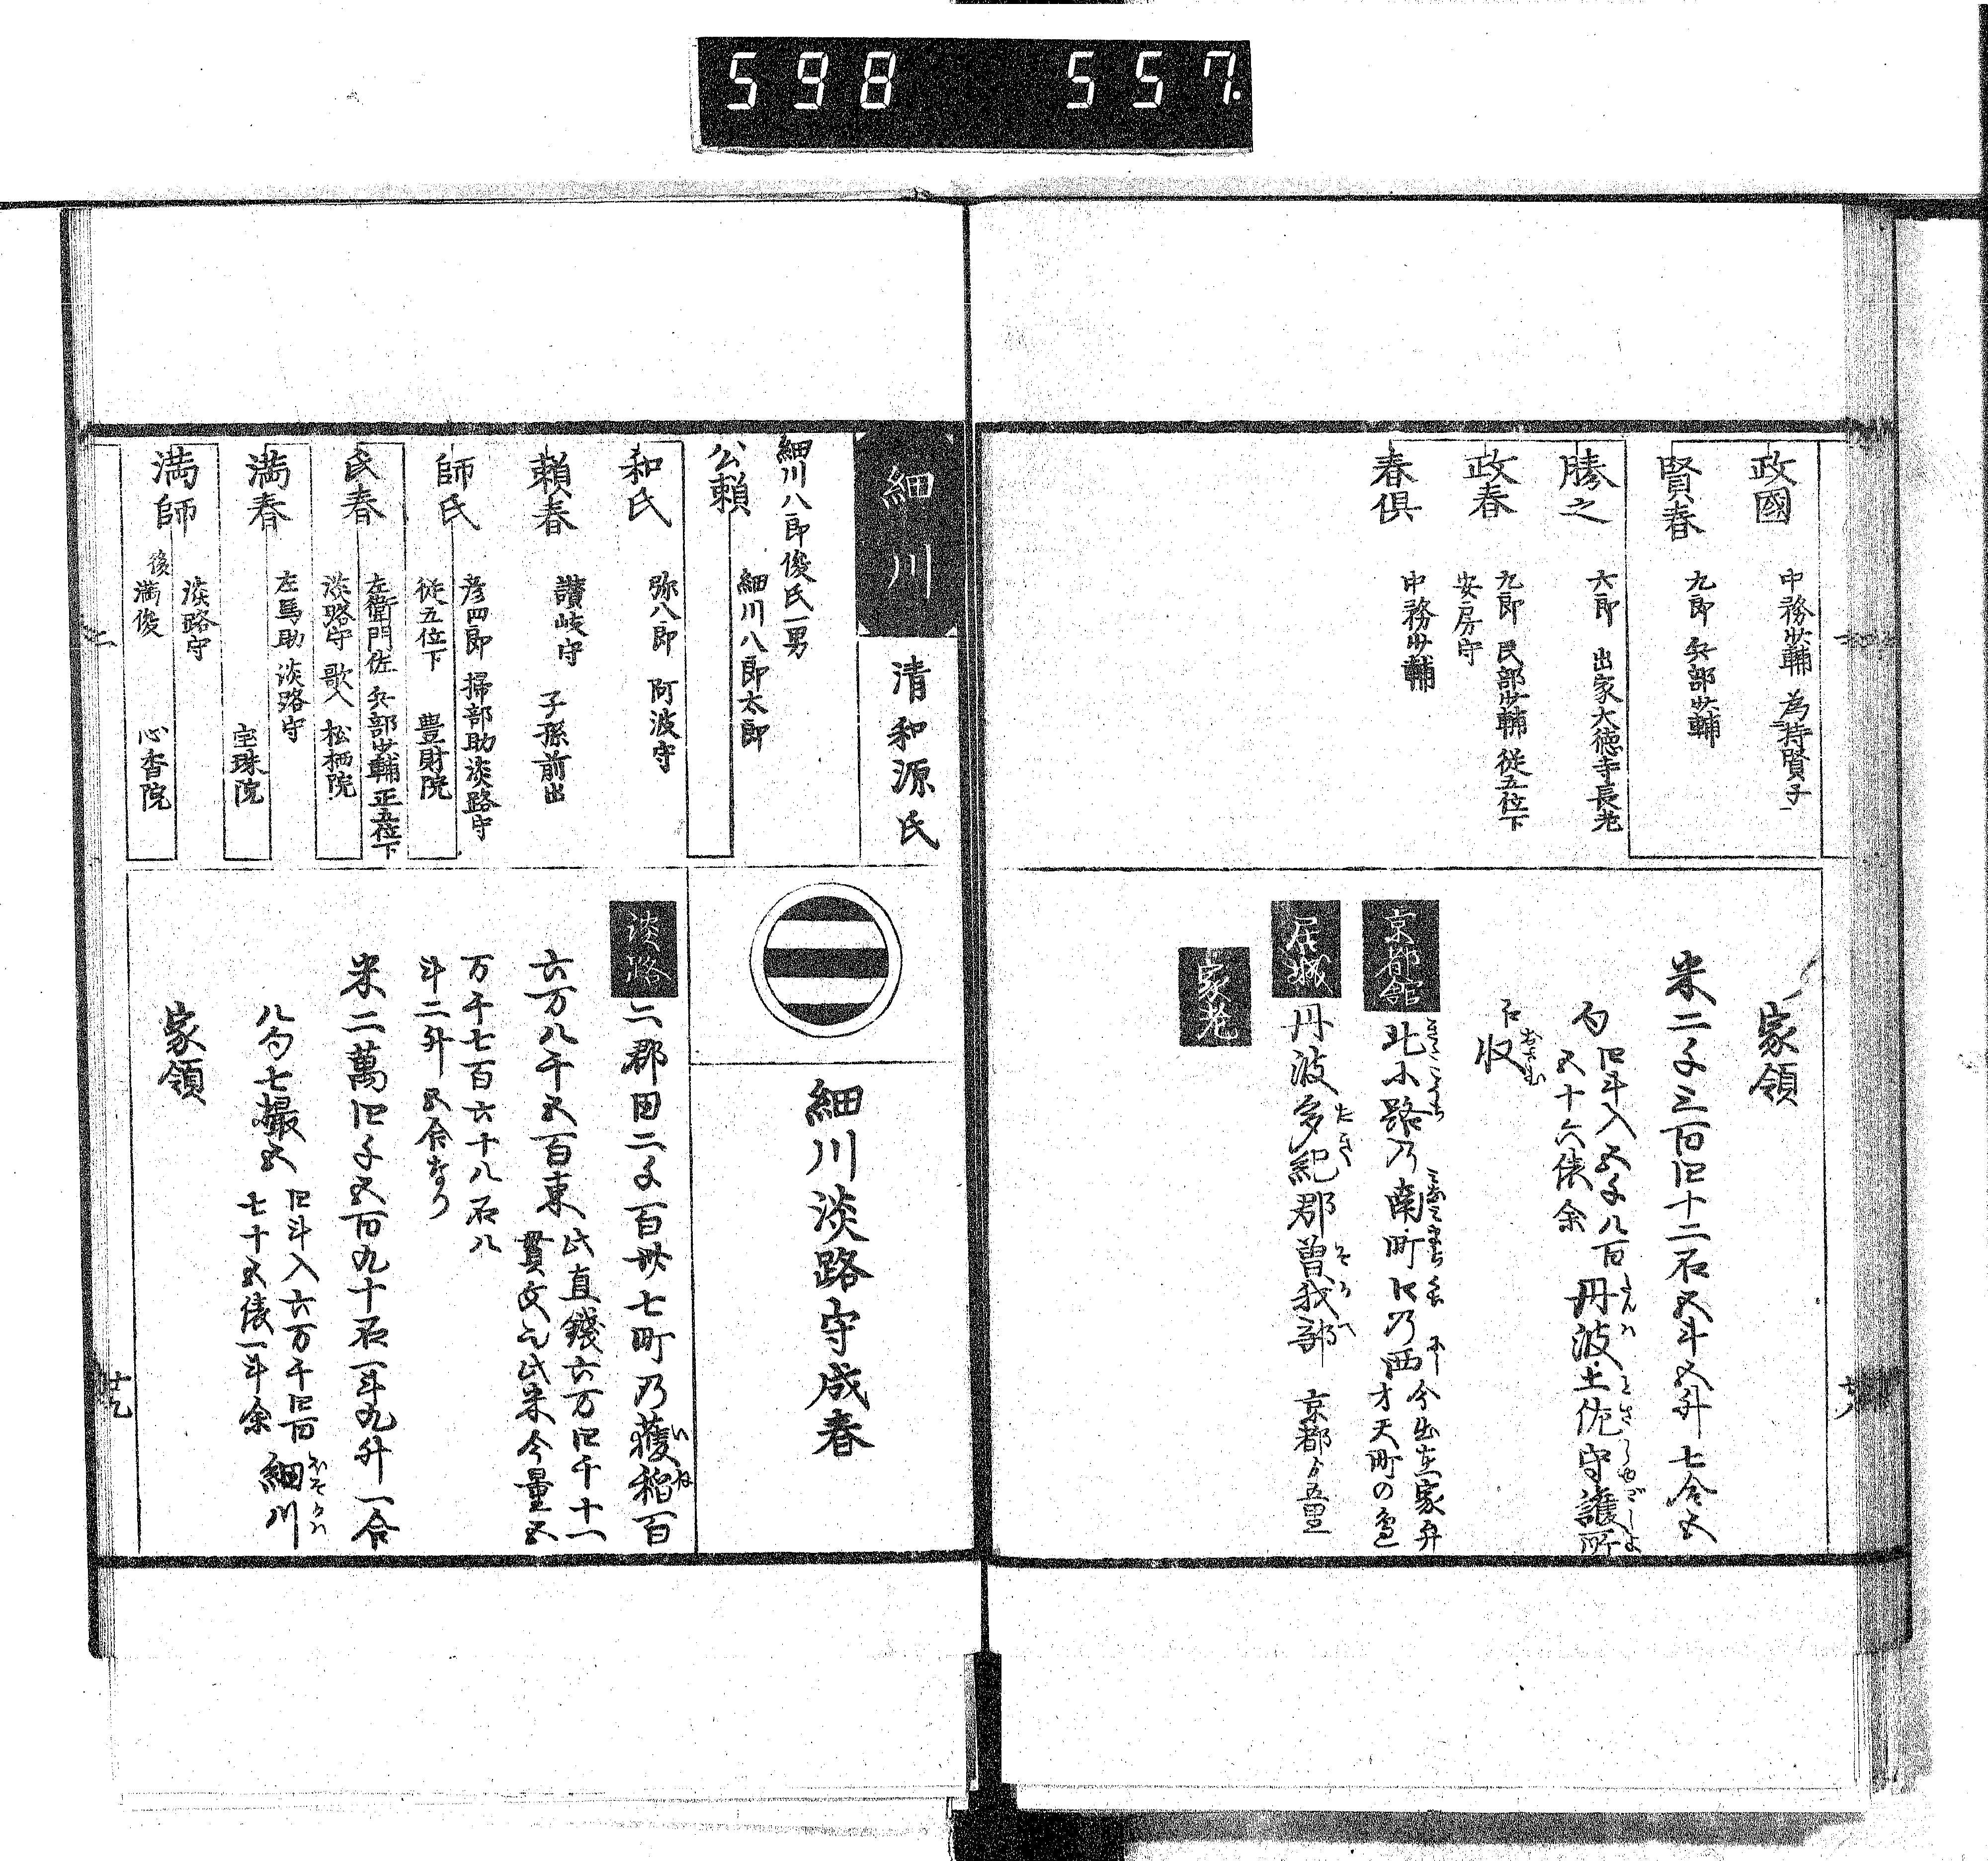 598 557.
政國 中務少輔 為持賢子
賢春 九郎 兵部少輔
勝之 六郎 出家大徳寺長老
政春 九郎 民部少輔 従五位下
安房守
春倶 中務少輔
家領
米二千三百四十二石五斗五升七合五
勺 四斗入五千八百
五十六俵余
丹波土佐守護所
に収
京都館 北小路乃南町口乃西
今出
居城 丹波多紀郡曽我部 京都ゟ五里
家老
細川 清和源氏
細川八郎俊氏一男
公頼 細川八郎太郎
和氏 弥八郎 阿波守
頼春 讃岐守 子孫前出
師氏 彦四郎 掃部助淡路守
従五位下 豊財院
氏春 左衛門佐 兵部少輔正五位下
淡路守 歌人 松栖院
満春 左馬助 淡路守
宝珠院
満師 淡路守
後満俊 心香院
細川淡路守成春
淡路 二郡田二千百卅七町乃穫稲百
六万八千五百束 此直錢六万四千十一
貫文也此米今量五
万千七百六十八石八
斗二升五合なり
米二萬四千五百九十石一斗九升一合
八勺七撮五 四斗入六万千四百
七十五俵一斗余
細川
家領